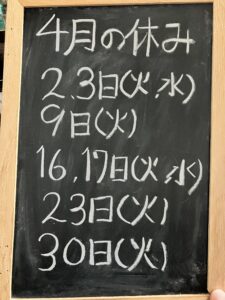 4月の休み
2.3日(火.水)
9日(火)
16.17日(火.水)
23日(火)
30日(火)